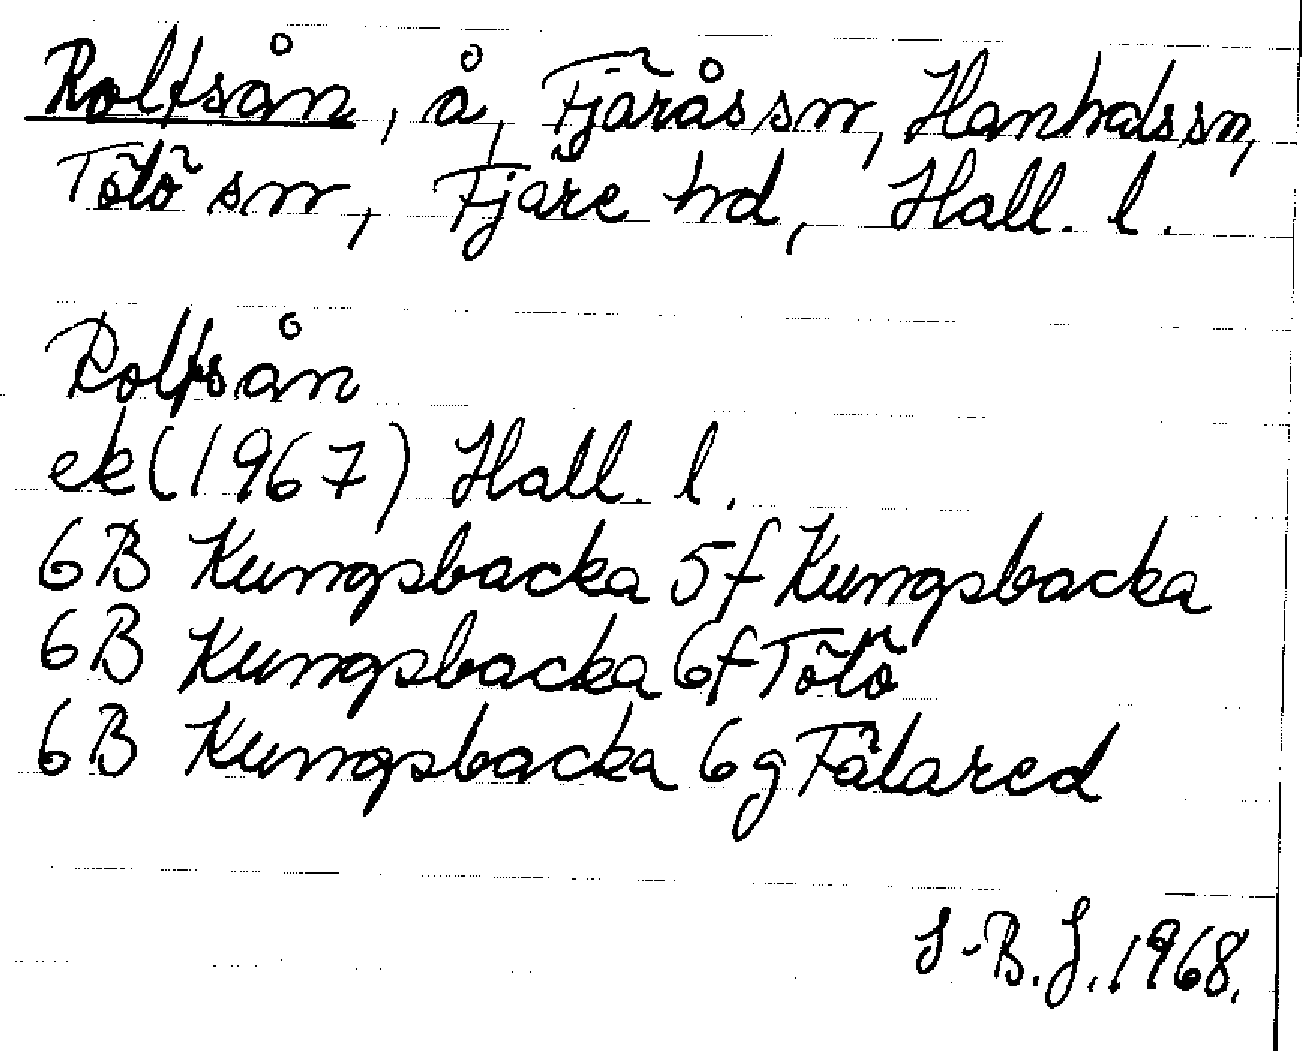 Rolfsån, å, Fjärås sn, Hanhals sn,
Tölö sn, Fjäre hd, Hall. l.
Rolfsån
ek (1967) Hall. l.
6B Kungsbacka 5f Kungsbacka
6B Kungsbacka 6f Tölö
6B Kungsbacka 6g Fälared
S-B. J. 1968.